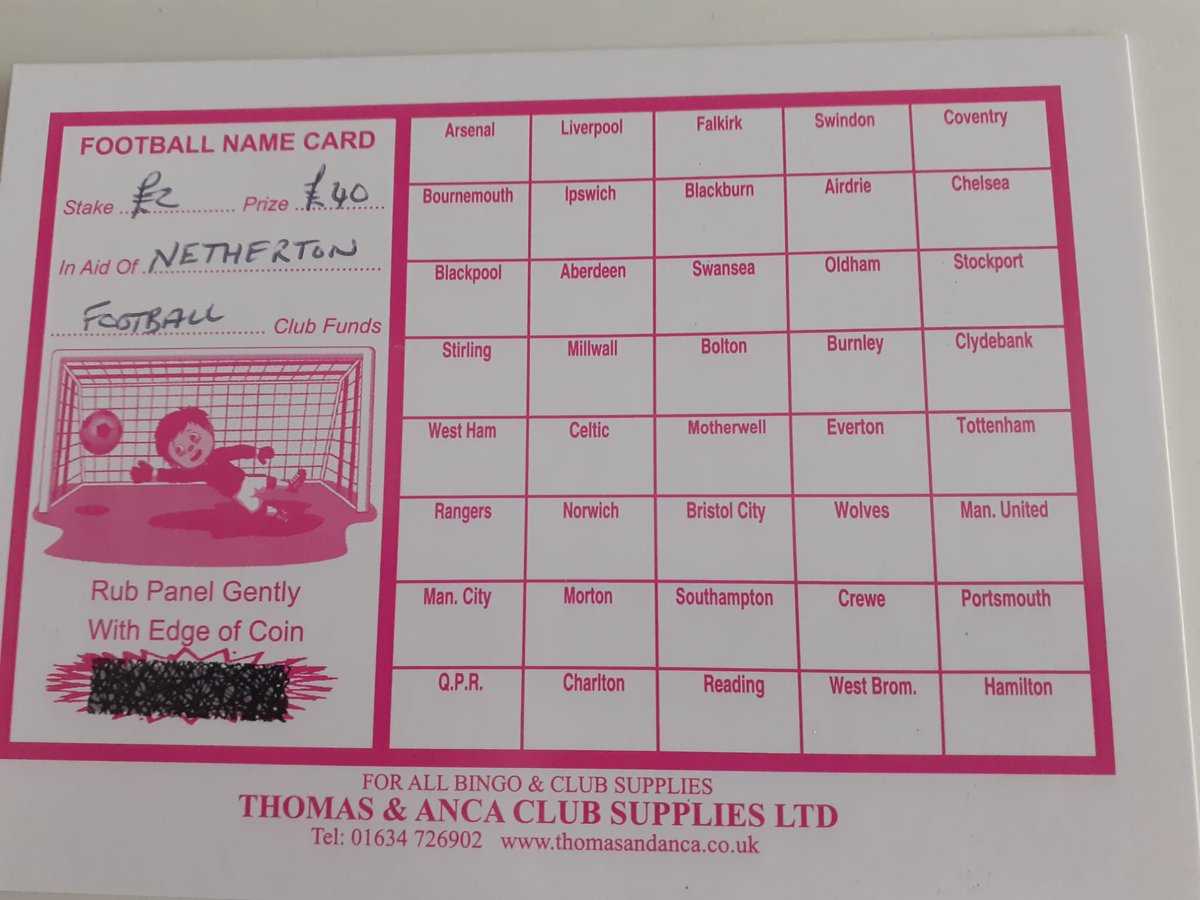 FOOTBALL NAME CARD
Stake £2 Prize £40
In Aid Of NETHERTON
FOOTBALL Club Funds
Rub Panel Gently
With Edge of Coin
Arsenal Liverpool Falkirk Swindon Coventry
Bournemouth Ipswich Blackburn Airdrie Chelsea
Blackpool Aberdeen Swansea Oldham Stockport
Stirling Millwall Bolton Burnley Clydebank
West Ham Celtic Motherwell Everton Tottenham
Rangers Norwich Bristol City Wolves Man. United
Man. City Morton Southampton Crewe Portsmouth
Q.P.R. Charlton Reading West Brom. Hamilton
FOR ALL BINGO & CLUB SUPPLIES
THOMAS & ANCA CLUB SUPPLIES LTD
Tel: 01634 726902 www.thomasandanca.co.uk